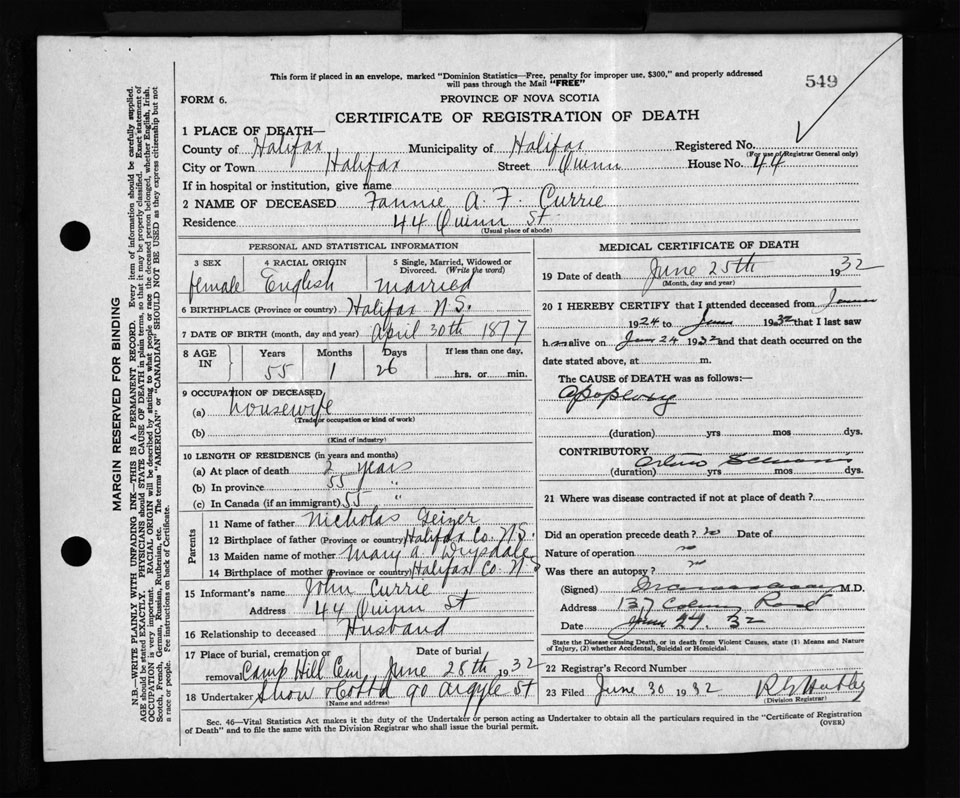 This form if placed in an envelope, marked "Dominion Statistics—Free, penalty for improper use, $300," and properly addressed
will pass through the Mail "FREE"
549
FORM 6.
PROVINCE OF NOVA SCOTIA
CERTIFICATE OF REGISTRATION OF DEATH
1 PLACE OF DEATH—
County of Halifax Municipality of Halifax Registered No.
(For use of Registrar General only)
City or Town Halifax Street Quinn House No. 44
If in hospital or institution, give name
2 NAME OF DECEASED Fannie A. F. Currie
Residence 44 Quinn St
(Usual place of abode)
PERSONAL AND STATISTICAL INFORMATION
3 SEX 4 RACIAL ORIGIN 5 Single, Married, Widowed or
Divorced. (Write the word)
female English married
6 BIRTHPLACE (Province or country) Halifax N.S.
7 DATE OF BIRTH (month, day and year) April 30th 1877
8 AGE IN Years Months Days If less than one day,
55 1 26 hrs. or min.
9 OCCUPATION OF DECEASED
(a) housewife
(Trade occupation or kind of work)
(b)
(Kind of industry)
10 LENGTH OF RESIDENCE (in years and months)
(a) At place of death 2 years
(b) In province 55 "
(c) In Canada (if an immigrant) 55 "
Parents
11 Name of father Nicholas Geizer
12 Birthplace of father (Province or country) Halifax Co. N.S.
13 Maiden name of mother Mary A. Drysdale
14 Birthplace of mother (Province or country) Halifax Co. N.S
15 Informant's name John Currie
Address 44 Quinn St
16 Relationship to deceased Husband
17 Place of burial, cremation or Date of burial
removal Camp Hill Cem June 28th 1932
18 Undertaker Snow 90 Argyle St
(Name and address)
MEDICAL CERTIFICATE OF DEATH
19 Date of death June 25th 1932
(Month, day and year)
20 I HEREBY CERTIFY that I attended deceased from
1924 to June 1932 that I last saw
h alive on June 24 1932 and that death occurred on the
date stated above, at m.
The CAUSE OF DEATH was as follows:—
Apoplexy
(duration) yrs mos dys.
CONTRIBUTORY
(duration) yrs mos dys.
21 Where was disease contracted if not at place of death?
Did an operation precede death? no Date of
Nature of operation no
Was there an autopsy? no
(Signed) M.D.
Address 137 Road
Date June 29. 32
State the Disease causing Death, or in death from Violent Causes, state (1) Means and Nature
of Injury, (2) whether Accidental, Suicidal or Homicidal.
22 Registrar's Record Number
23 Filed June 30 1932
(Division Registrar)
Sec. 46—Vital Statistics Act makes it the duty of the Undertaker or person acting as Undertaker to obtain all the particulars required in the "Certificate of Registration
of Death" and to file the same with the Division Registrar who shall issue the burial permit. (OVER)
MARGIN RESERVED FOR BINDING
N.B.—WRITE PLAINLY WITH UNFADING INK—THIS IS A PERMANENT RECORD. Every item of information should be carefully supplied.
AGE should be stated EXACTLY. PHYSICIANS should STATE CAUSE OF DEATH in plain terms, so that it may be properly classified. Exact statement of
OCCUPATION is very important. RACIAL ORIGIN will be described by stating to what people or race the deceased person belonged, whether English, Irish,
Scotch, French, German, Russian, Ruthenian, etc. The terms "AMERICAN" or "CANADIAN" SHOULD NOT BE USED as they express citizenship but not
a race or people. Fee instructions on back of Certificate.